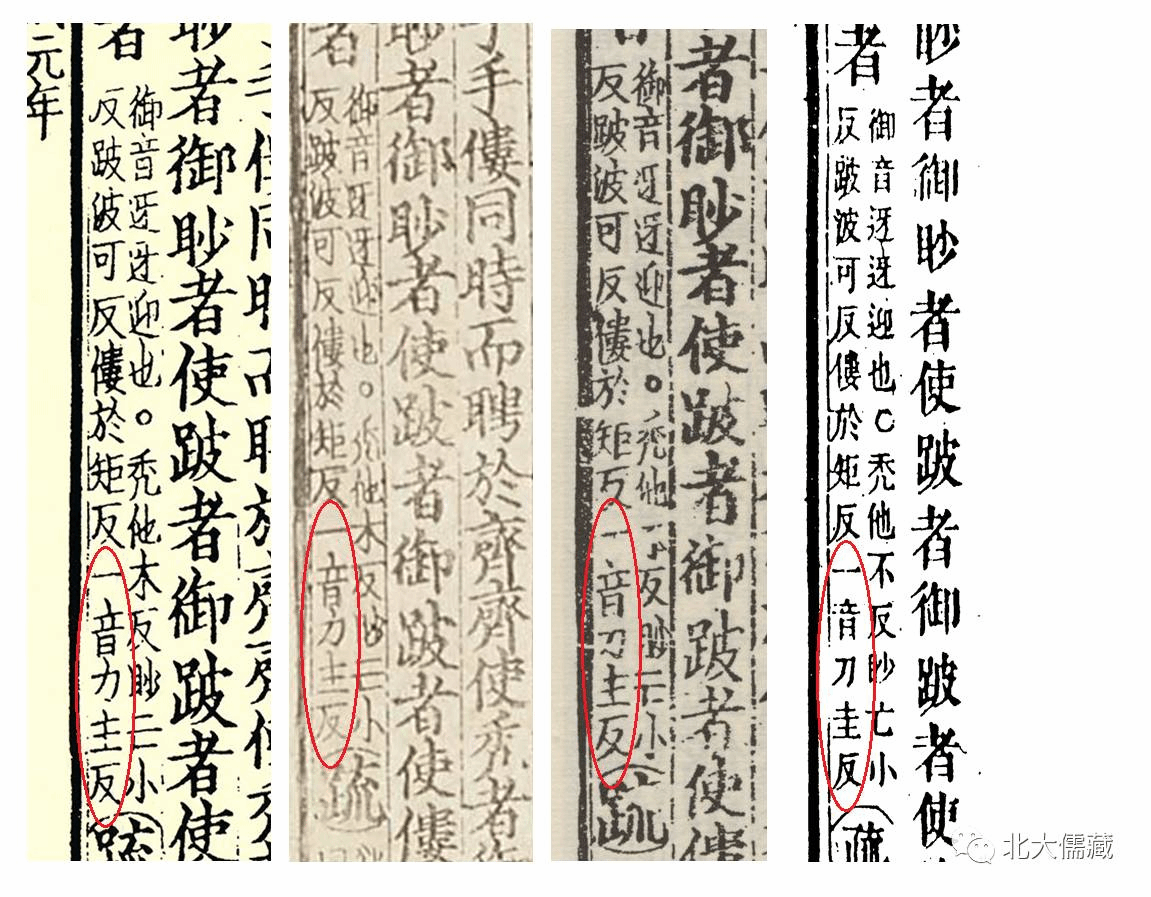 眇者御眇者使跛者御跛者使
者
御音迓迓迎也。秃他木反眇二小
反跛波可反僂於矩反一音力主反
疏
元年
手僂同時而聘於齊齊使秃者
眇者御眇者使跛者御跛者使僂
者
御音迓迓迎也。秃他木反眇亡小
反跛波可反僂於矩反一音力主反
疏
者御眇者使跛者御跛者使僂
御音迓迓迎也。秃他下反眇亡小
反跛波可反僂於矩反一音刀主反
疏
眇者御眇者使跛者御跛者使
者
御音迓迓迎也C秃他不反眇亡小
反跛波可反僂於矩反一音刀圭反
疏
北大儒藏